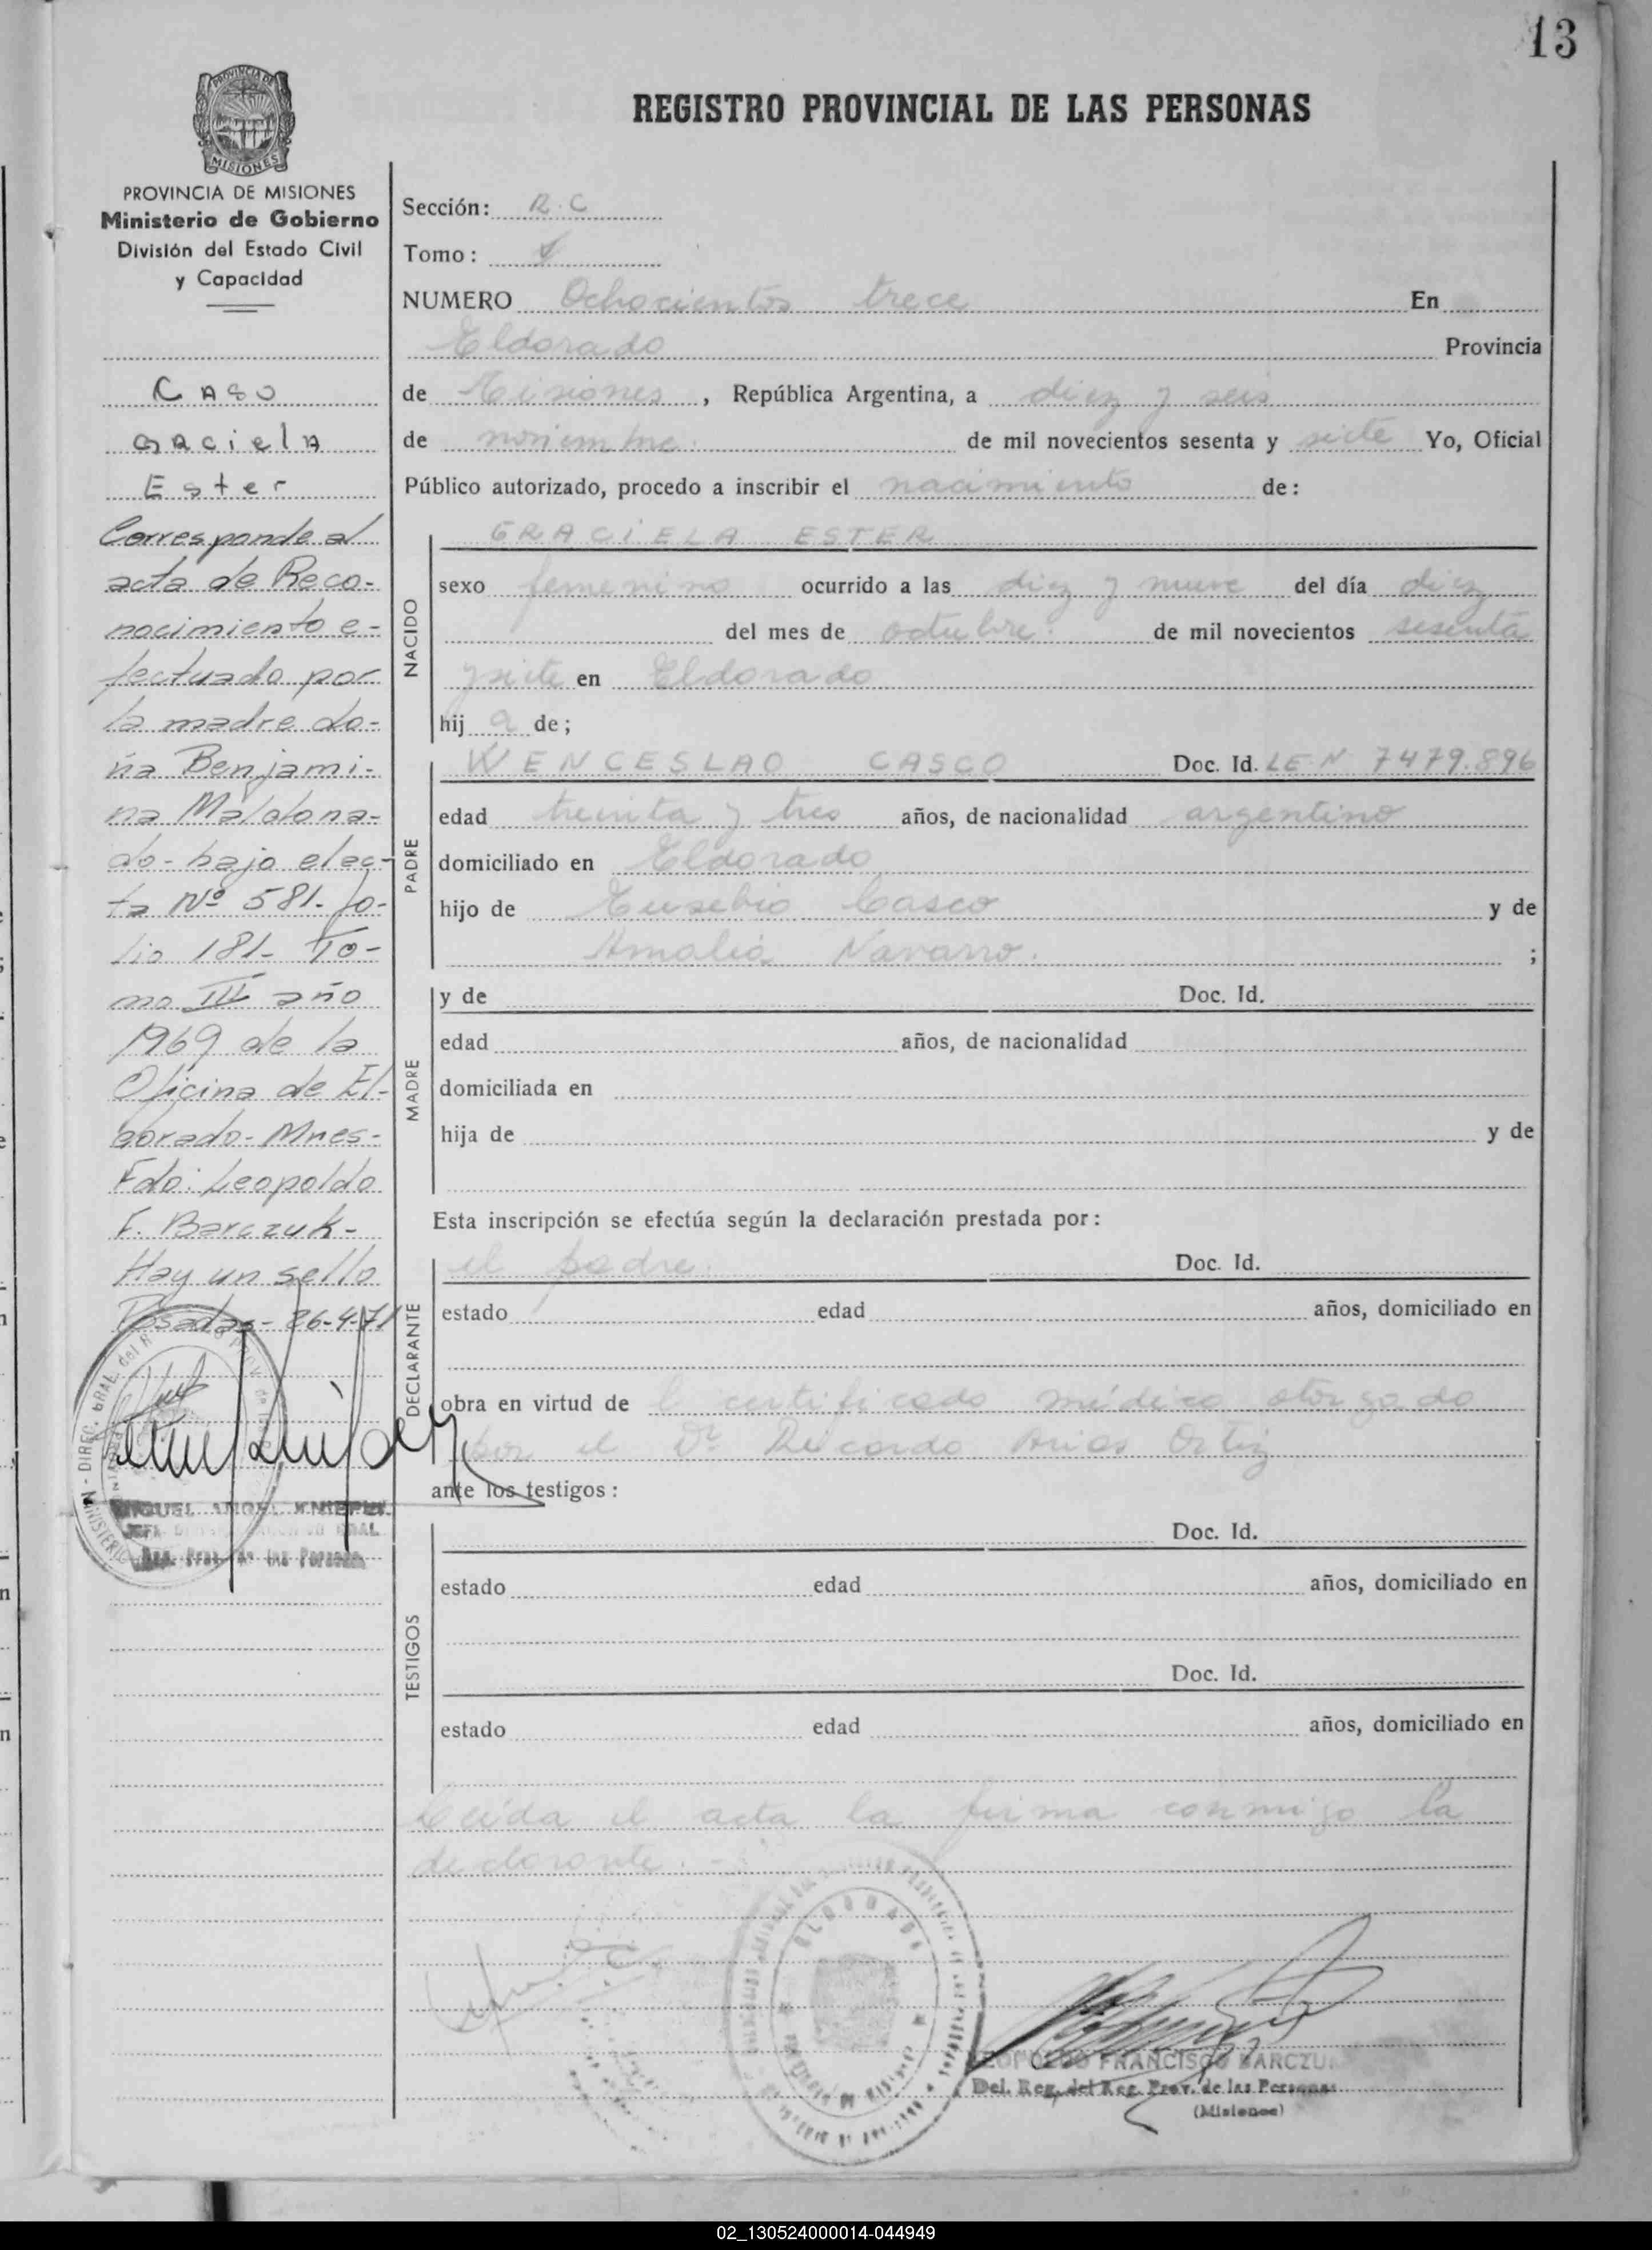 13
REGISTRO PROVINCIAL DE LAS PERSONAS
PROVINCIA DE
MISIONES
PROVINCIA DE MISIONES
Ministerio de Gobierno
División del Estado Civil
y Capacidad
Caso
Graciela
Ester
Corresponde al
acta de Reco-
nocimiento e-
fectuado por
la madre do-
ña Benjami-
na Maldona-
do - bajo el ac-
ta Nº 581- fo-
lio 181- To-
mo III año
1969 de la
Oficina de El-
dorado - Mnes -
Fdo: Leopoldo
F. Barczuk -
Hay un sello
Posadas - 26-4-71
MIGUEL ANGEL
Reg. Prov. de las Personas
Sección: R.C
Tomo:
NUMERO Ochocientos trece En
Eldorado Provincia
de Misiones, República Argentina, a diez y seis
de noviembre. de mil novecientos sesenta y siete Yo, Oficial
Público autorizado, procedo a inscribir el nacimiento de:
NACIDO
GRACIELA ESTER
sexo femenino ocurrido a las diez y nueve del día diez
del mes de octubre. de mil novecientos sesenta
y siete en Eldorado
hij a de;
PADRE
WENCESLAO CASCO Doc. Id. LE N 7479.896
edad treinta y tres años, de nacionalidad argentino
domiciliado en Eldorado
hijo de Eusebio Casco y de
Amalia Navarro. ;
MADRE
y de Doc. Id.
edad años, de nacionalidad
domiciliada en
hija de y de
Esta inscripción se efectúa según la declaración prestada por:
DECLARANTE
el padre. Doc. Id.
estado edad años, domiciliado en
obra en virtud de l certificado médico otorgado
por el Dr Ricardo Arias Ortiz
ante los testigos:
TESTIGOS
Doc. Id.
estado edad años, domiciliado en
Doc. Id.
estado edad años, domiciliado en
Leída el acta la firma conmigo la
declarante. -
ELDORADO
LEOPOLDO FRANCISCO BARCZUK
Del. Reg. del Reg. Prov. de las Personas
(Misiones)
02_130524000014-044949